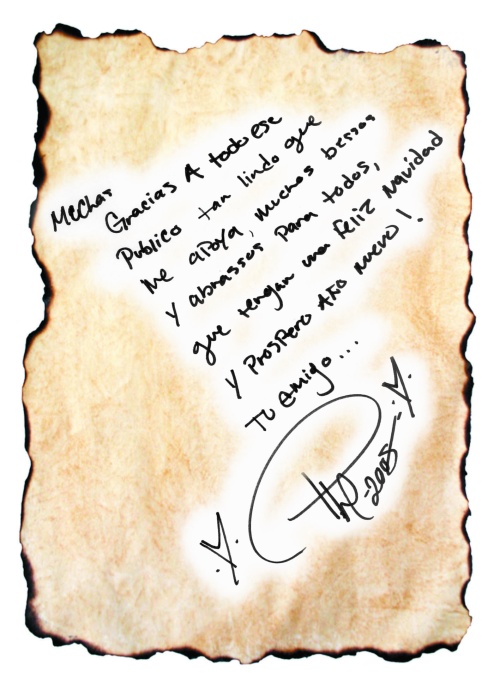 Mechas
Gracias A todo ese
Publico tan lindo que
Me apoya, muchos bessos
Y abrassos para todos,
que tengan una feliz Navidad
Y Prospero Año nuevo!
Tu Amigo...
-2005